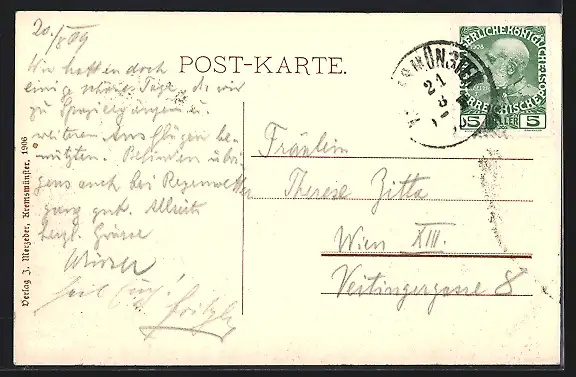 20./8 09
POST-KARTE.
Wir hatten doch
einige schöne Tage, die wir
zu Spaziergängen u.
weiteren Ausflügen be-
nützten. Befinden übri-
gens auch bei Regenwetter
ganz gut. Allseits
herzl. Grüsse
Fritzl
Verlag J. Merzeder, Kremsmünster, 1906
MÜNSTER
21
8
1908
KAISERLICHE KÖNIGLICHE
ÖSTERREICHISCHE POST
5 HELLER 5
Fräulein
Therese Zitta
Wien XIII.
Veitingergasse 8